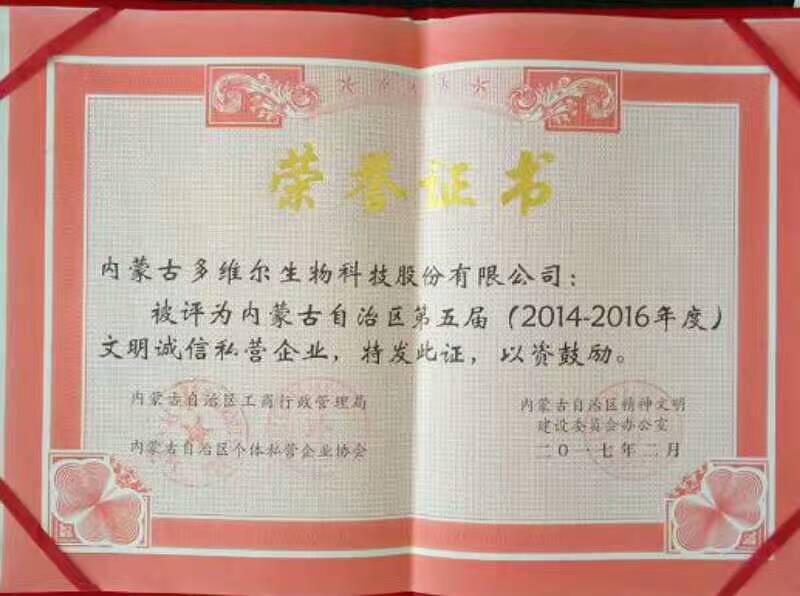 荣誉证书
内蒙古多维尔生物科技股份有限公司：
被评为内蒙古自治区第五届（2014-2016年度）
文明诚信私营企业，特发此证，以资鼓励。
内蒙古自治区工商行政管理局
内蒙古自治区个体私营企业协会
内蒙古自治区精神文明
建设委员会办公室
二〇一七年二月